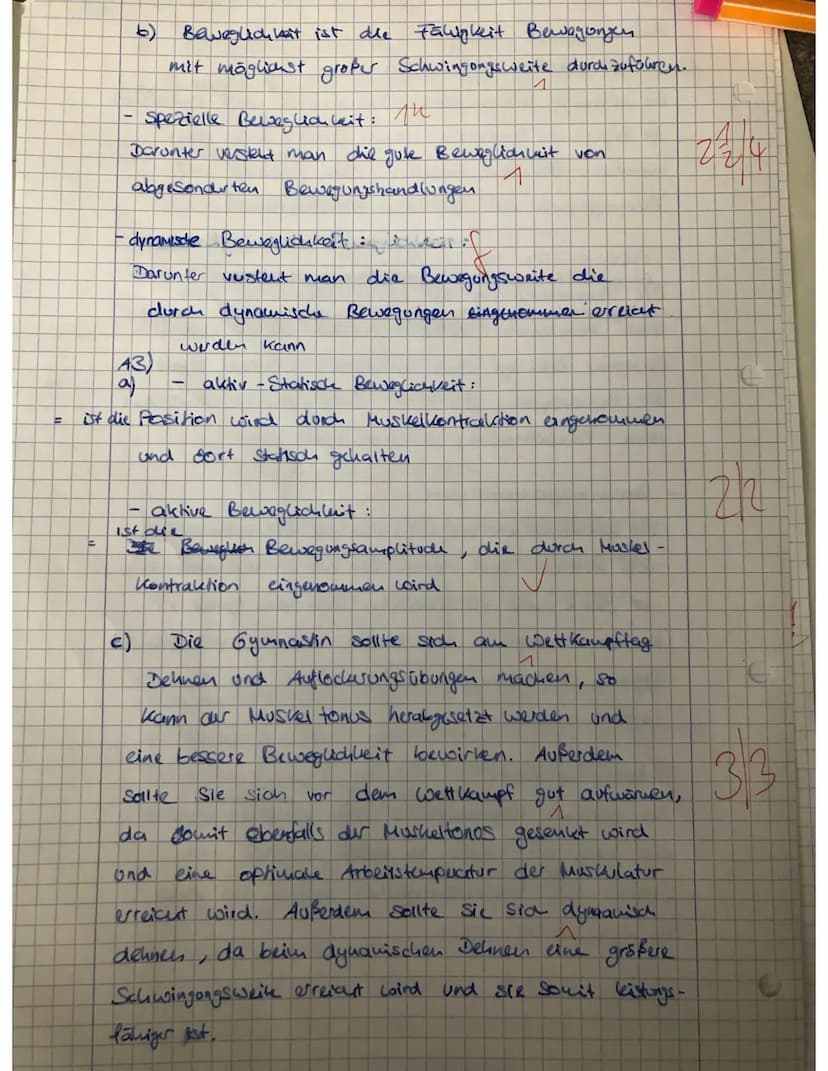 b) Beweglichkeit ist die Fähigkeit Bewegungen
mit möglichst großer Schwingungsweite durchzuführen.
1
- spezielle Beweglichkeit:
Darunter versteht man die gute Beweglichkeit von
2 1/2/4
abgesonderten Bewegungshandlungen
1
- dynamische Beweglichkeit: f
Darunter versteht man die Bewegungsweite die
durch dynamische Bewegungen eingenommen erreicht
werden kann
A3)
a) - aktiv-statische Beweglichkeit:
= ist die Position wird durch Muskelkontraktion eingenommen
und dort statisch gehalten
2/2
- aktive Beweglichkeit:
ist die
= Bewegungsamplitude, die durch Muskel-
kontraktion eingenommen wird
c) Die Gymnastin sollte sich am Wettkampftag
Dehnen und Auflockerungsübungen machen, so
kann der Muskeltonus herabgesetzt werden und
eine bessere Beweglichkeit bewirken. Außerdem
sollte Sie sich vor dem Wettkampf gut aufwärmen,
3/3
da somit ebenfalls der Muskeltonos gesenkt wird
und eine optimale Arbeitstemperatur der Muskulatur
erreicht wird. Außerdem sollte Sie sich dynamisch
dehnen, da beim dynamischen Dehnen eine größere
Schwingungsweite erreicht wird und sie somit leistungs-
fähiger ist.